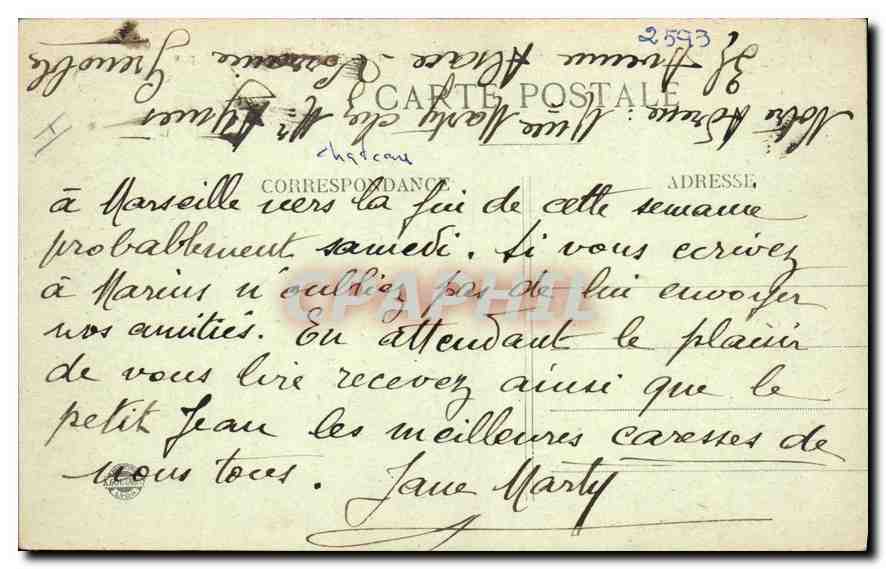 2593
Notre Adresse : Mme Marty chez Mr
35 Avenue Alsace-Lorraine Grenoble
CARTE POSTALE
chateau
CORRESPONDANCE
ADRESSE
à Marseille vers la fin de cette semaine
probablement samedi. Si vous ecrivez
à Marius n'oubliez pas de lui envoyer
nos amitiés. En attendant le plaisir
de vous lire recevez ainsi que le
petit Jean les meilleures caresses de
nous tous. Jane Marty
CPAPHIL